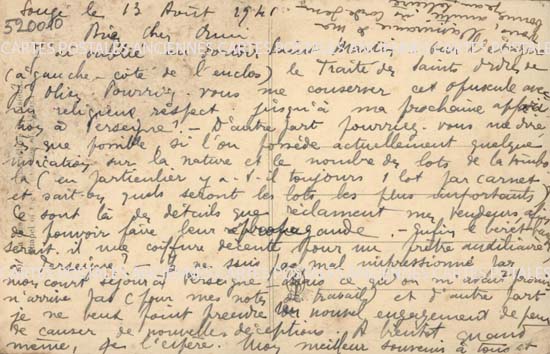 Souge le 13 Août 1941
520010
Bien cher Ami
J'ai oublié en
(à gauche - côté de l'enclos) le Traité des Saints Ordres de
Mr Olier. Pourriez-vous me conserver cet opuscule avec
un religieux respect jusqu'à ma prochaine
à Perseigne? - D'autre part pourriez-vous me dire
que possible, si l'on possède actuellement quelque
indication sur la nature et le nombre des lots de la tombo
la (en particulier y a-t-il toujours 1 lot par carnet
et sait-on quels seront les lots les plus importants)
ce sont là des détails que réclament mes vendeurs afin
de pouvoir faire leur propagande. - Enfin le béret
serait-il une coiffure décente pour un prêtre auxiliaire
Perseigne? Je ne suis pas mal impressionné par
mon court séjour à Perseigne - mais ce qu'on m'avait promis
n'arrive pas (pour mes notes de travail) et d'autre part
je ne veux point prendre un nouvel engagement de peur
de causer de nouvelles déceptions. A bientôt quand
même, je l'espère. Mon meilleur souvenir à tous et
CARTES POSTALES ANCIENNES CARTES POSTALES ANCIENNES